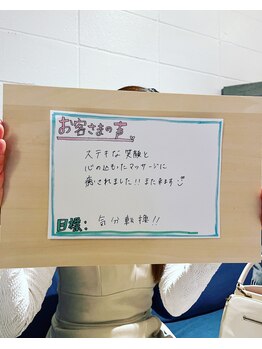 お客さまの声
ステキな笑顔と
心の込もったマッサージに
癒されました!!また来ます
目標: 気分転換!!